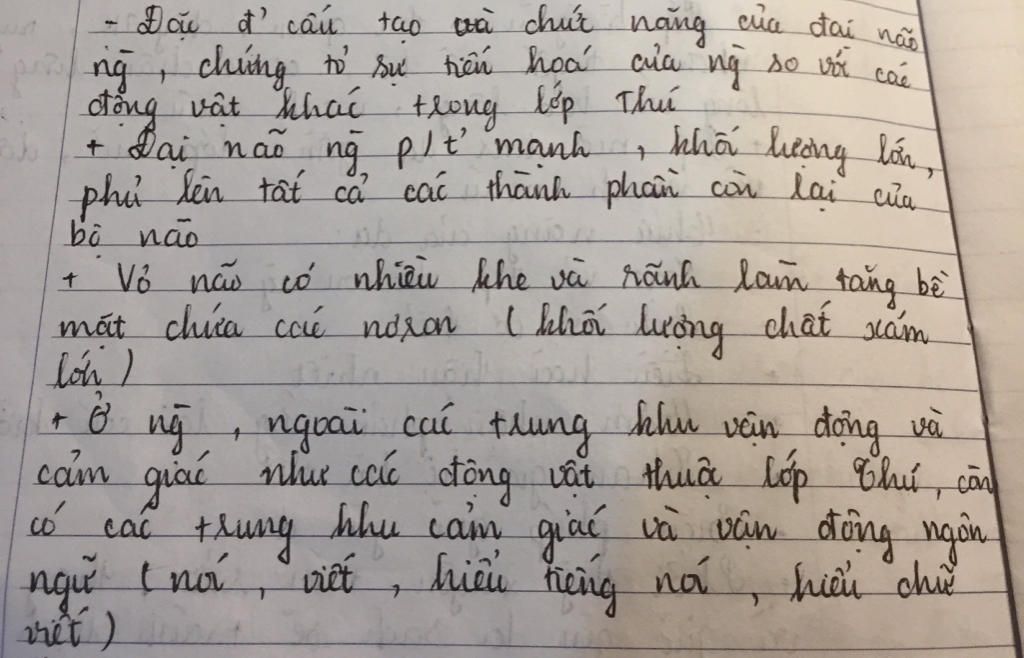 - Đặc đ' cấu tạo và chức năng của đai não
ng̅, chứng tỏ sự tiến hoá của ng̅ so với các
động vật khác trong lớp Thú
+ Đại não ng̅ p/t' mạnh, khối lượng lớn,
phủ lên tất cả các thành phần còn lại của
bộ não
+ Vỏ não có nhiều khe và rãnh làm tăng bề
mặt chứa các nơron (khối lượng chất xám
lớn)
+ Ở ng̅, ngoài các trung khu vận động và
cảm giác như các động vật thuộc lớp Thú, còn
có các trung khu cảm giác và vận động ngôn
ngữ (nói, viết, hiểu tiếng nói, hiểu chữ
viết)